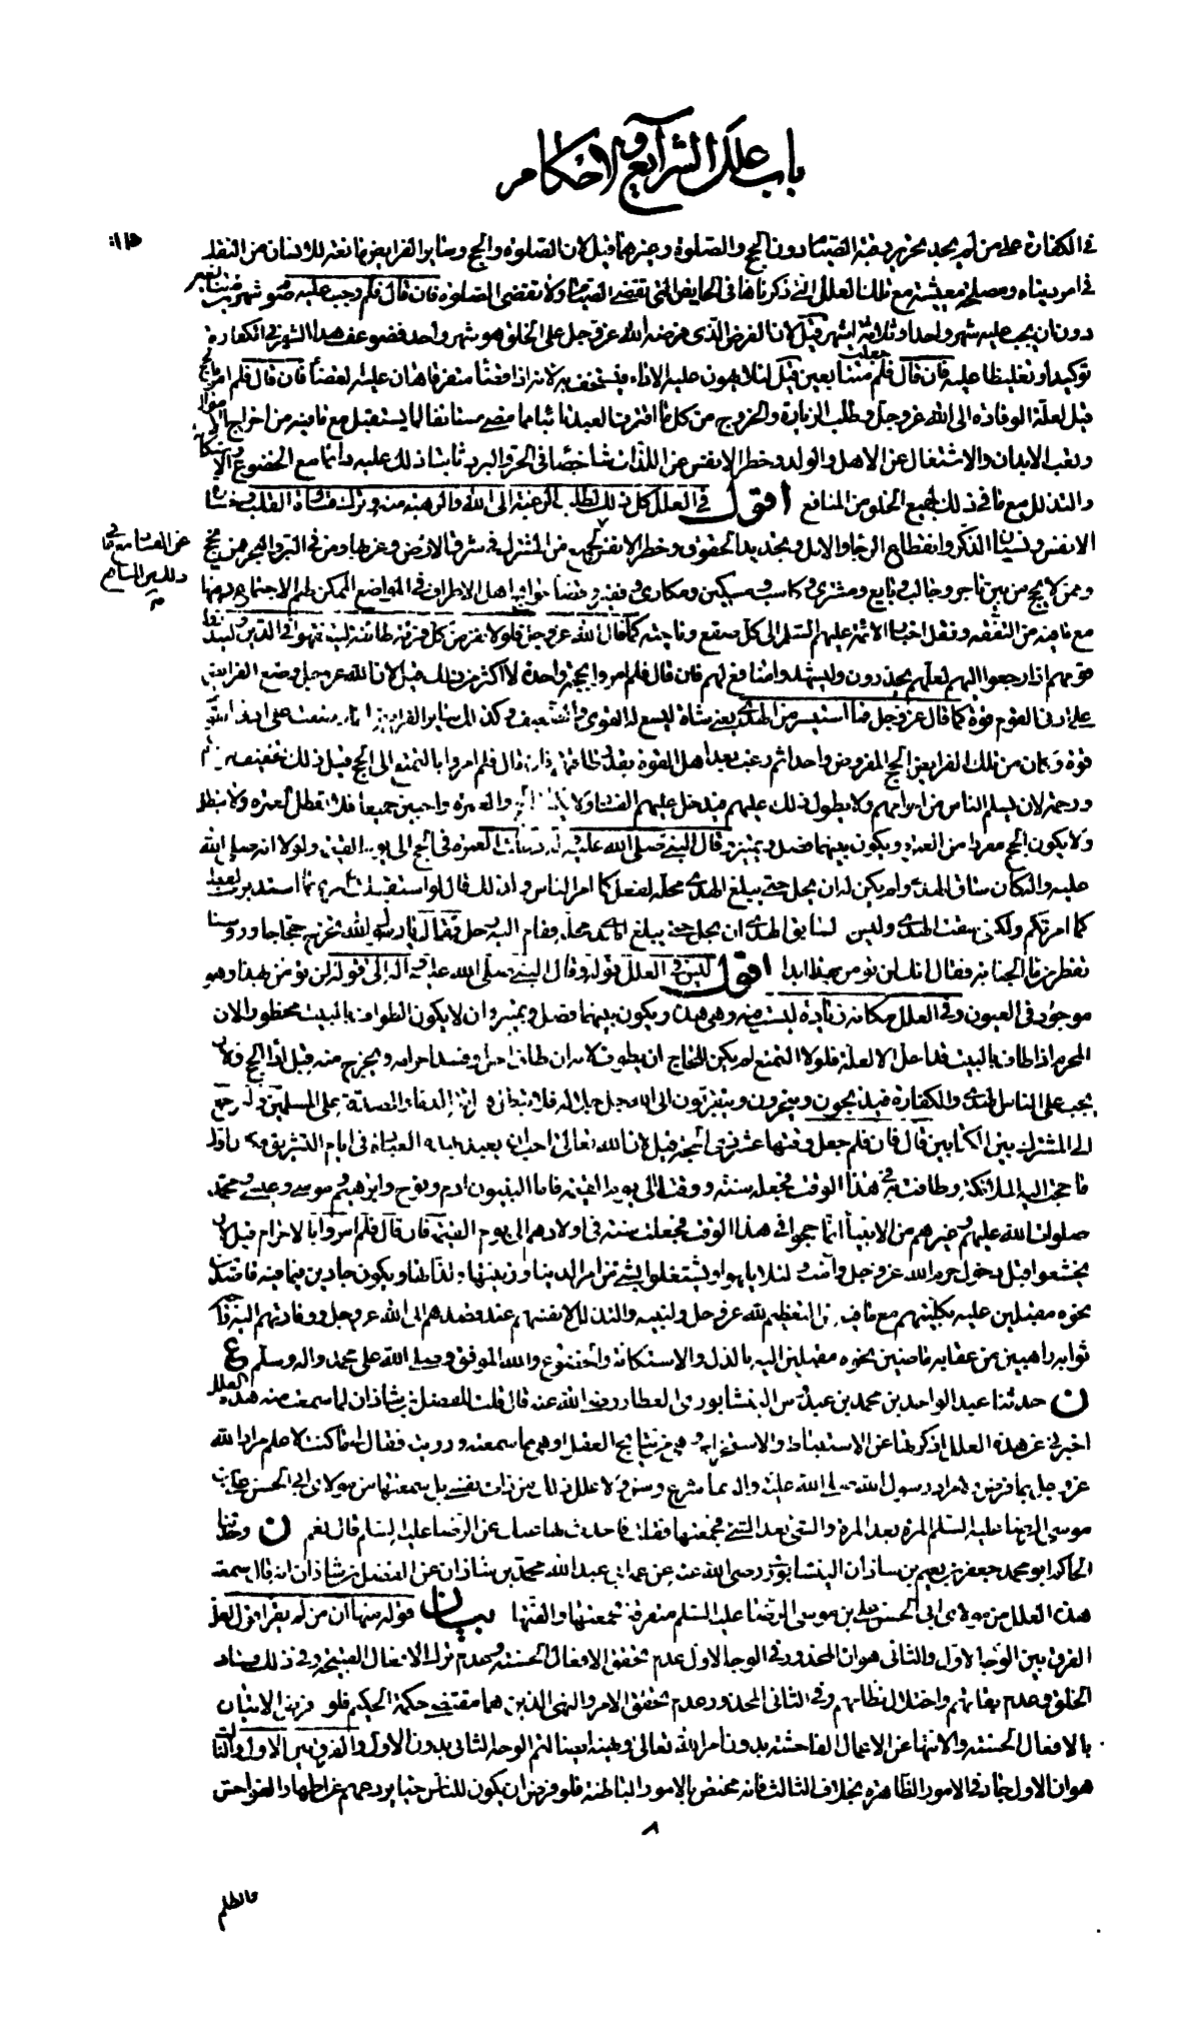 باب علل الشرايع و الاحكام
في الكفارة على من لم يجد تحرير رقبة الصيام دون الحج والصلوة وغيرهما قيل لان الصلوة والحج وساير الفرايض مانعة للانسان من التقلب
في امر دنياه ومصلحة معيشته مع تلك العلل التي ذكرناها في الحايض التي تقضي الصيام ولا تقضي الصلوة فان قال فلم وجب عليه صوم شهرين متتابعين
دون ان يجب عليه شهر واحد او ثلاثة اشهر قيل لان الفرض الذي فرضه الله عز وجل على الخلق هو شهر واحد فضوعف هذا الشهر في الكفارة
توكيدا وتغليظا عليه فان قال فلم جعلت متتابعين قيل لئلا يهون عليه الاداء فيستخف به لانه اذا قضاه متفرقا هان عليه القضاء فان قال فلم امر بالحج
قيل لعلة الوفادة الى الله عز وجل وطلب الزيادة والخروج من كل ما اقترف العبد تائبا مما مضى مستانفا لما يستقبل مع ما فيه من اخراج الاموال
وتعب الابدان والاشتغال عن الاهل والولد وحظر الانفس عن اللذات شاخصا في الحر والبرد ثابتا ذلك عليه دائما مع الخضوع والاستكانة
والتذلل مع ما في ذلك لجميع الخلق من المنافع اقول في العلل كل ذلك لطلب الرغبة الى الله والرهبة منه وترك قساوة القلب وخساسة
الانفس ونسيان الذكر وانقطاع الرجاء والامل وتجديد الحقوق وحظر الانفس عن الفساد مع ما في ذلك من المنافع لجميع من في شرق الارض وغربها ومن في البر والبحر ممن يحج
وممن لا يحج من بين تاجر وجالب وبايع ومشتري وكاسب ومسكين ومكاري وفقير وقضاء حوايج اهل الاطراف في المواضع الممكن لهم الاجتماع فيها
مع ما فيه من التفقه ونقل اخبار الائمة عليهم السلم الى كل صقع وناحية كما قال الله عز وجل فلولا نفر من كل فرقة طائفة ليتفقهوا في الدين ولينذروا
قومهم اذا رجعوا اليهم لعلهم يحذرون وليشهدوا منافع لهم فان قال فلم امروا بحجة واحدة لا اكثر من ذلك قيل لان الله عز وجل وضع الفرايض
على ادنى القوم قوة كما قال عز وجل فما استيسر من الهدي يعني شاة ليسع له القوي والضعيف وكذلك ساير الفرايض انما وضعت على ادنى القوم
قوة وكان من تلك الفرايض الحج المفروض واحدا ثم رغب بعد اهل القوة بقدر طاقتهم فان قال فلم امروا بالتمتع الى الحج قيل ذلك تخفيف من ربكم
ورحمة لان يسلم الناس من احرامهم ولا يطول ذلك عليهم فيدخل عليهم الفساد ولان يكون الحج والعمرة واجبين جميعا فلا تعطل العمرة ولا تبطل
ولا يكون الحج مفردا من العمرة ويكون بينهما فصل وتمييز وقال النبي صلى الله عليه واله دخلت العمرة في الحج الى يوم القيمة ولولا انه صلى الله
عليه واله كان ساق الهدي ولم يكن له ان يحل حتى يبلغ الهدي محله لفعل كما امر الناس ولذلك قال لو استقبلت من امري ما استدبرت لفعلت
كما امرتكم ولكني سقت الهدي وليس لسايق الهدي ان يحل حتى يبلغ الهدي محله فقام اليه رجل فقال يا رسول الله نخرج حجاجا ورؤسنا
تقطر من ماء الجنابة فقال انك لن تؤمن بهذا ابدا اقول ليس في العلل قوله وقال النبي صلى الله عليه واله الى قوله لن تؤمن بهذا وهو
موجود في العيون وفي العلل مكانه زيادة ليست فيه وهي هذه ويكون بينهما فصل وتمييز وان لا يكون الطواف بالبيت محظورا لان
المحرم اذا طاف بالبيت قد احل الا لعلة فلولا التمتع لم يكن للحاج ان يطوف لانه ان طاف احل وفسد احرامه ويخرج منه قبل اداء الحج ولان
يجب على الناس الهدي والكفارة فيذبحون وينحرون ويتقربون الى الله جل جلاله فلا تبطل هراقة الدماء والصدقة على المسلمين ولم يرجع
الى المشترك بين الكتابين فان قال فلم جعل وقتها عشر ذي الحجة قيل لان الله تعالى احب ان يعبد بهذه العبادة في ايام التشريق وكان اول
ما حجت اليه الملائكة وطافت به في هذا الوقت فجعله سنة ووقتا الى يوم القيمة فاما النبيون ادم ونوح وابرهيم وموسى وعيسى ومحمد
صلوات الله عليهم وغيرهم من الانبياء انما حجوا في هذا الوقت فجعلت سنة في اولادهم الى يوم القيمة فان قال فلم امروا بالاحرام قيل لان
يخشعوا قبل دخول حرم الله عز وجل وامنه ولئلا يلهوا ويشتغلوا بشئ من امر الدنيا وزينتها ولذاتها ويكون جادين فيما فيه قاصدين
نحوه مقبلين عليه بكليتهم مع ما فيه من التعظيم لله عز وجل ولنبيه والتذلل لانفسهم عند قصدهم الى الله عز وجل ووفادتهم اليه راجين
ثوابه راهبين من عقابه ماضين نحوه مقبلين اليه بالذل والاستكانة والخضوع والله الموفق وصلى الله على محمد واله وسلم ع
ن حدثنا عبد الواحد بن محمد بن عبدوس النيشابوري العطار رضي الله عنه قال قلت للفضل بن شاذان لما سمعت منه هذه العلل
اخبرني عن هذه العلل اذكرتها عن الاستنباط والاستخراج وهي من نتايج العقل او هي مما سمعته ورويته فقال لي ما كنت لاعلم مراد الله
عز وجل بما فرض ولا مراد رسول الله صلى الله عليه واله بما شرع وسن ولا علل ذلك من ذات نفسي بل سمعتها من مولاي ابي الحسن علي بن
موسى الرضا عليه السلم المرة بعد المرة والشئ بعد الشئ فجمعتها فقلت فاحدث بها عنك عن الرضا عليه السلم قال نعم ن وحدثنا
الحاكم ابو محمد جعفر بن نعيم بن شاذان النيشابوري رضي الله عنه عن عمه ابي عبد الله محمد بن شاذان عن الفضل بن شاذان انه قال سمعت
هذه العلل من مولاي ابي الحسن علي بن موسى الرضا عليه السلم متفرقة فجمعتها والفتها بيان قوله منها ان من لم يقر الخ لعل
الفرق بين الوجه الاول والثاني هو ان المحذور في الوجه الاول عدم تحقق الافعال الحسنة وعدم ترك الافعال القبيحة وفي ذلك فساد
الخلق وعدم بقائهم واختلال نظامهم وفي الثاني المحذور عدم تحقق الامر والنهي الذين هما مقتضى حكمة الحكيم فلو فرض الاتيان
بالافعال الحسنة والانتهاء عن الاعمال الفاحشة بدون امر الله تعالى ونهيه ايضا لتم الوجه الثاني بدون الاول والفرق بين الاول والثالث
هو ان الاول جار في الامور الظاهرة بخلاف الثالث فانه مختص بالامور الباطنة فلو فرض ان يكون للناس حياء يردعهم عن اظهار الفواحش
٨
والظلم